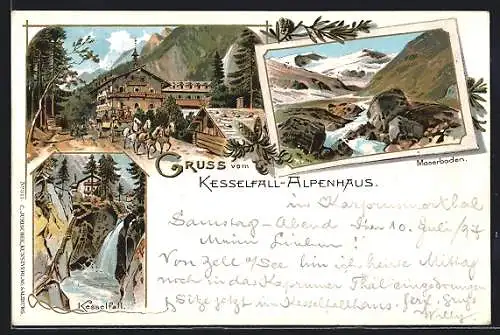 Mooerboden.
GRUSS vom
KESSELFALL-ALPENHAUS.
Kesselfall.
C. JURISCHEK, KUNSTVERLAG, SALZBURG.
in
Samstag-Abend Den 10. Juli 97
Meine Lieben!!
Von Zell a/See bin ich heute Mittag
noch in das Kapruner Thal eingedrungen
Sitze jetzt im Kesselfallhaus.
Willy